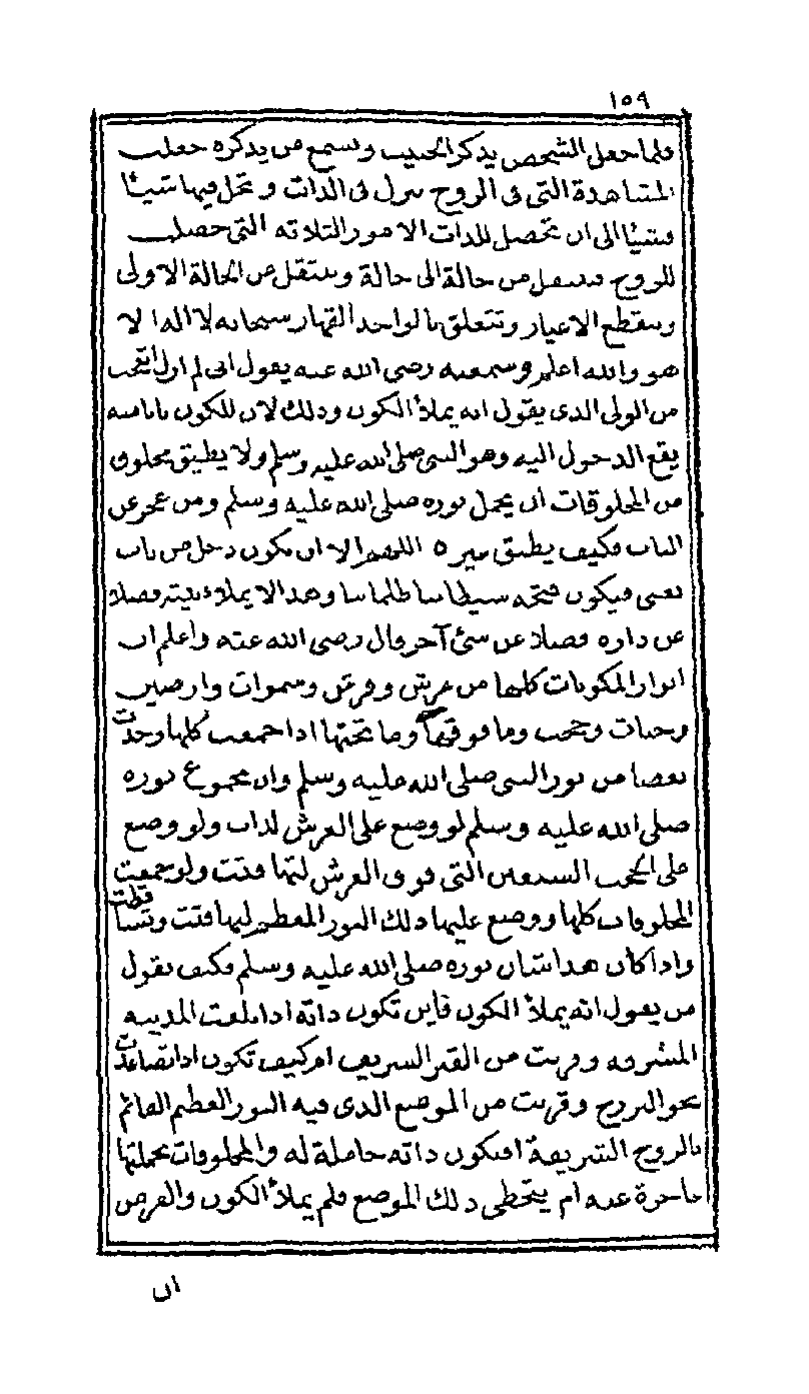 ١٥٩
فلما جعل الشخص يذكر الحبيب ويسمع من يذكره جعلت
المشاهدة التى فى الروح تنزل فى الذات وتحل فيها شيئا
فشيئا الى ان تحصل للذات الامور الثلاثة التى حصلت
للروح فتنتقل من حالة الى حالة وينتقل من الحالة الاولى
وينقطع الاغيار وتتعلق بالواحد القهار سبحانه لا اله الا
هو والله اعلم وسمعته رضى الله عنه يقول انى لم ازل اتعجب
من الولى الذى يقول انه يملأ الكون وذلك لان للكون بابا منه
يقع الدخول اليه وهو النبى صلى الله عليه وسلم ولا يطيق مخلوق
من المخلوقات ان يحمل نوره صلى الله عليه وسلم ومن عجز عن
الباب فكيف يطيق غيره اللهم الا ان يكون دخل من باب
يعنى فيكون فتحه شيطانيا ظلمانيا وهذا لا يملأ بيته فضلا
عن داره فضلا عن شئ آخر وقال رضى الله عنه واعلم ان
انوار المكونات كلها من عرش وفرش وسموات وارضين
وجنات وحجب وما فوقها وما تحتها اذا جمعت كلها وجدت
بعضا من نور النبى صلى الله عليه وسلم وان مجموع نوره
صلى الله عليه وسلم لو وضع على العرش لذاب ولو وضع
على الحجب السبعين التى فوق العرش لتهافتت ولو جمعت
المخلوقات كلها ووضع عليها ذلك النور العظيم لتهافتت وتساقطت
واذا كان هذا شان نوره صلى الله عليه وسلم فكيف يقول
من يقول انه يملأ الكون فاين تكون ذاته اذا بلغت المدينة
المشرفة وقربت من القبر الشريف ام كيف تكون اذا تصاعدت
نحو البرزخ وقربت من الموضع الذى فيه النور العظيم القائم
بالروح الشريفة افتكون ذاته حاملة له والمخلوقات بجملتها
عاجزة عنه ام يتخطى ذلك الموضع فلم يملأ الكون والغرض
ان